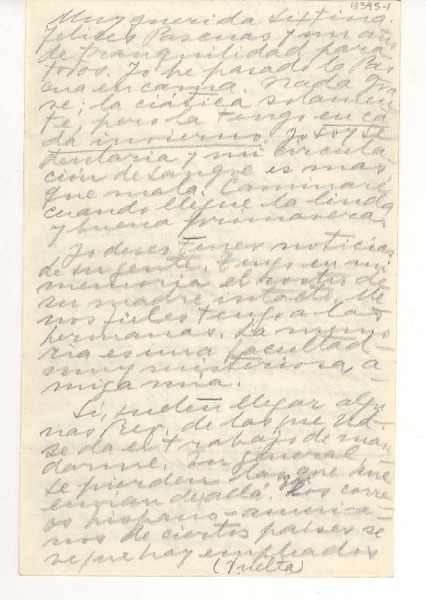 13395-1
Muy querida Sixtina:
Felices Pascuas y un año
de tranquilidad para
todos. Yo he pasado la Pas
cua en cama. Nada gra
ve; la ciática solamen
te, pero la tengo en ca
da invierno. Yo soy se
dentaria y mi circula-
ción de sangre es más
que mala. Caminaré
cuando llegue la linda
y buena primavera.
Yo deseo tener noticias
de su gente. Tengo en mi
memoria el rostro de
su madre intacto. Me
nos fieles tengo a las
hermanas. La memo
ria es una facultad
muy misteriosa, a-
miga mía.
Sí, suelen llegar algu
nas Rev. de las que Ud.
se da el trabajo de man
darme. En general
se pierden las que me
envían de allá. Los corre
os hispano-americ-
nos de ciertos países se
ve que hay empleados
(Vuelta)